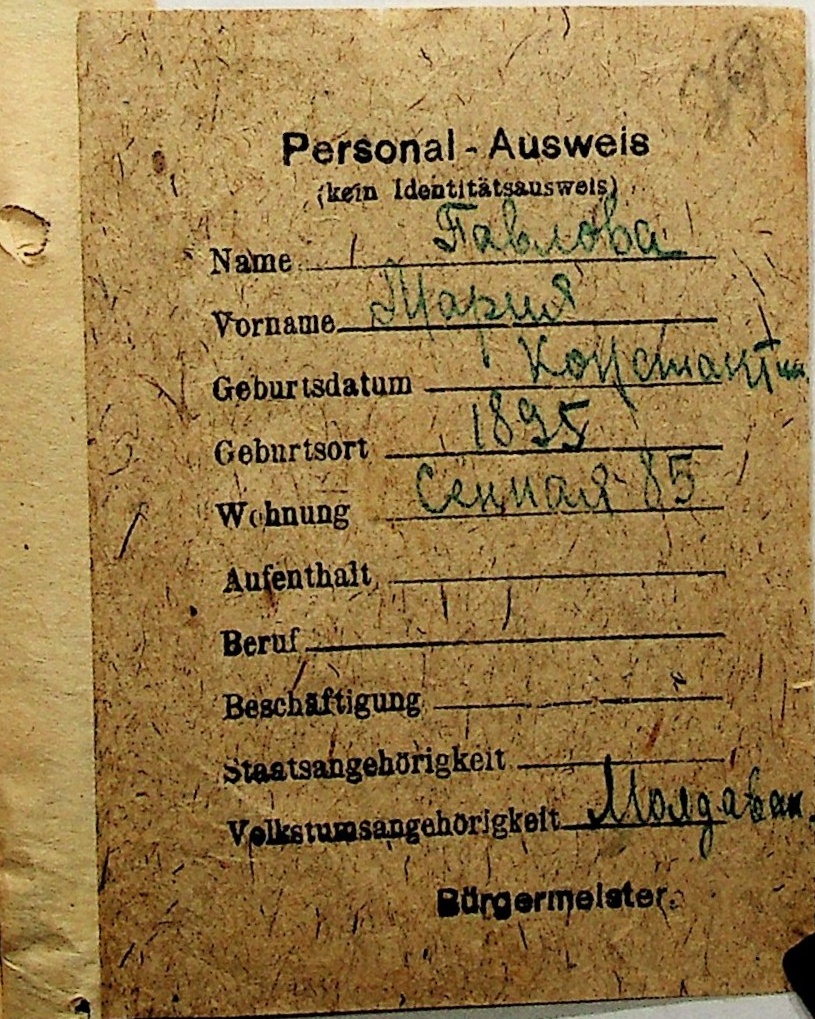 Personal - Ausweis
(kein Identitätsausweis)
Name Павлова
Vorname Мария
Geburtsdatum Константин.
Geburtsort 1895
Wohnung Сенная 85
Aufenthalt
Beruf
Beschäftigung
Staatsangehörigkeit
Volkstumsangehörigkeit Молдаван.
Bürgermeister.